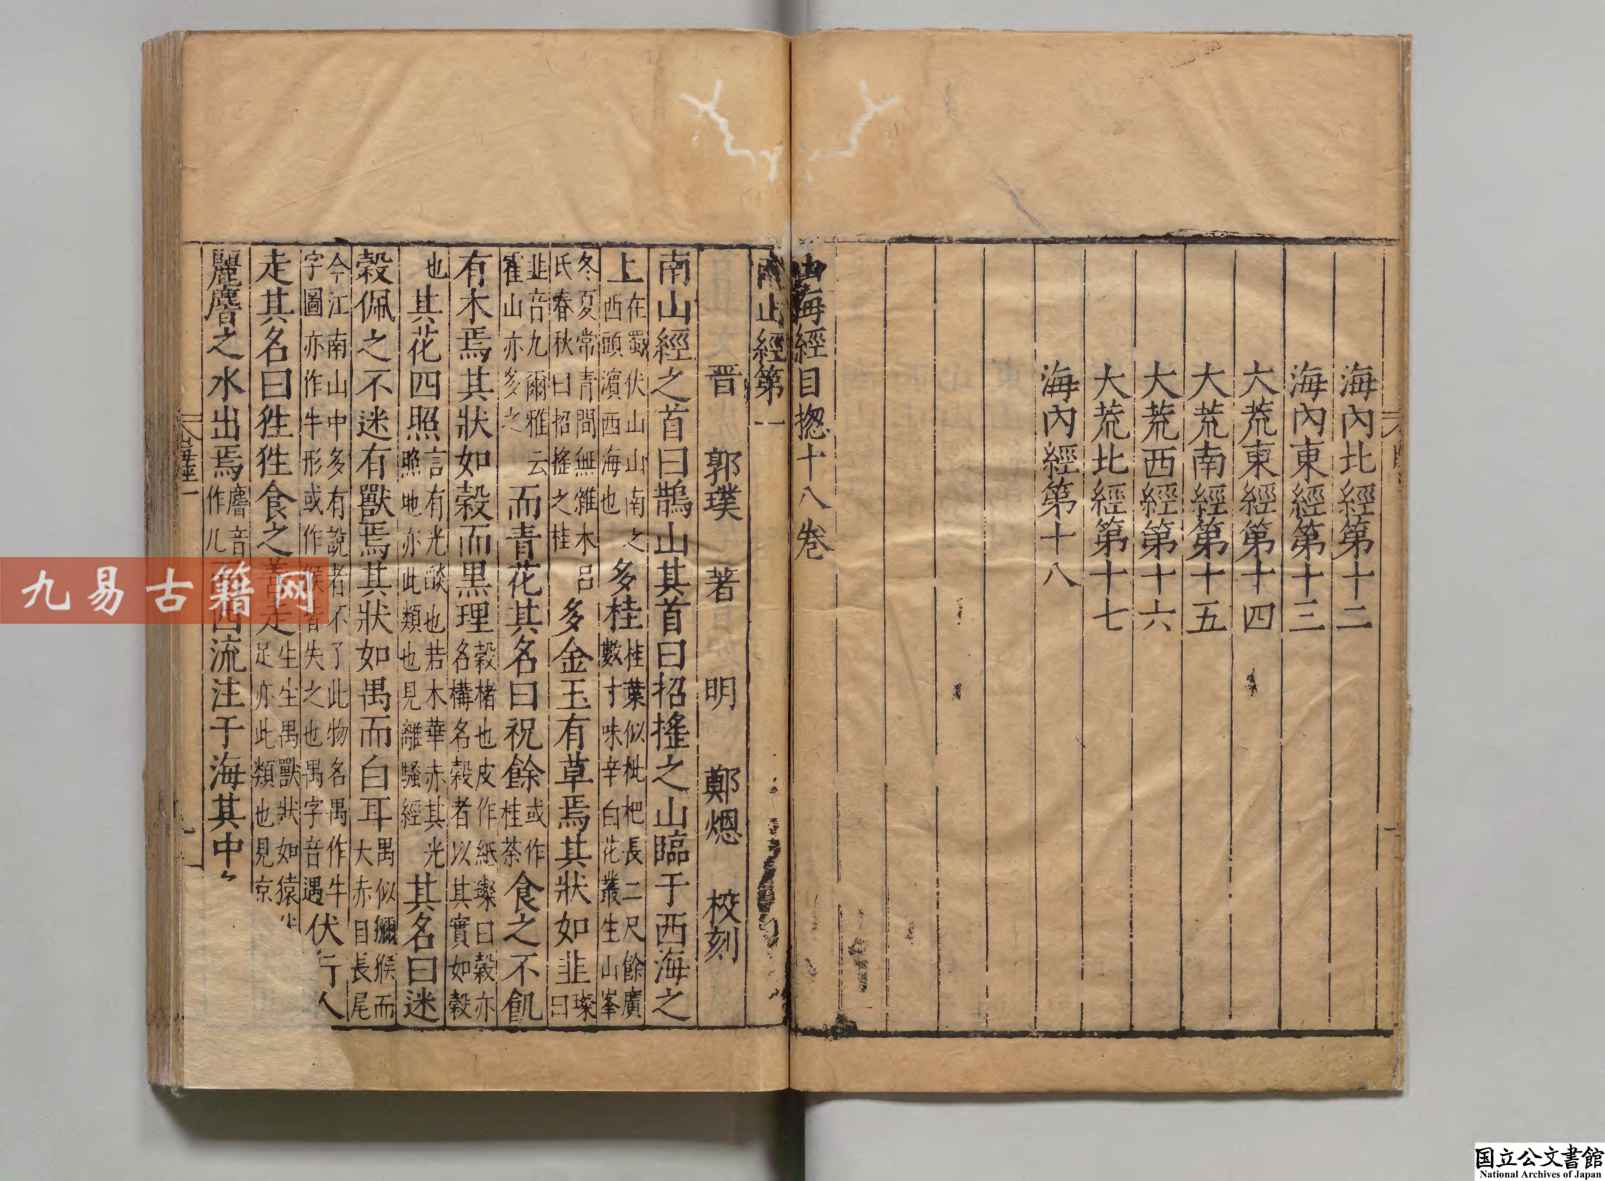 海內北經第十二
海內東經第十三
大荒東經第十四
大荒南經第十五
大荒西經第十六
大荒北經第十七
海內經第十八
山海經目揔十八卷
南山經第一
晋 郭璞 著 明 鄭煾 校刻
南山經之首曰鵲山其首曰招搖之山臨于西海之
上在蜀伏山山南之西頭濵西海也多桂桂葉似枇杷長二尺餘廣數寸味辛白花叢生山峯
冬夏常青間無雜木呂氏春秋曰招搖之桂多金玉有草焉其狀如韭璨曰
韭音九爾雅云霍山亦多之而青花其名曰祝餘或作桂荼食之不飢
有木焉其狀如榖而黑理榖楮也皮作紙璨曰榖亦名構名榖者以其實如榖
也其花四照言有光燄也若木華赤其光照地亦此類也見離騷經其名曰迷
榖佩之不迷有獸焉其狀如禺而白耳禺似獼猴而大赤目長尾
今江南山中多有說者不了此物名禺作牛字圖亦作牛形或作猴者失之也禺字音遇伏行人
走其名曰狌狌食之善走生生禺獸狀如猿足亦此類也見京
麗麐之水出焉麐音作几西流注于海其中
山海經一
九易古籍网
国立公文書館
National Archives of Japan